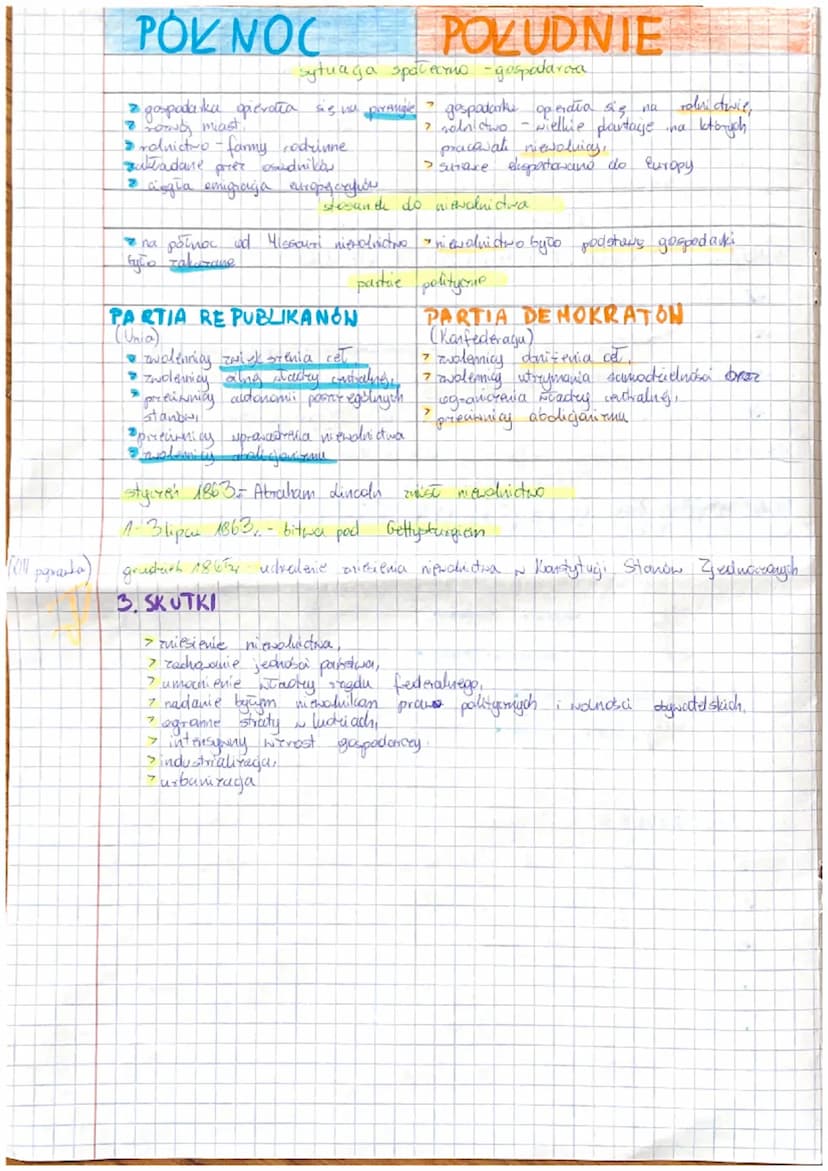 PÓŁNOC POŁUDNIE
sytuacja społeczno - gospodarcza
> gospodarka opierała się na przemyśle
> rozwój miast,
> rolnictwo - farmy rodzinne
zakładane przez osadników
> ciągła emigracja europejczyków
> gospodarka opierała się na rolnictwie,
> rolnictwo - wielkie plantacje na których
pracowali niewolnicy,
> surowce eksportowano do Europy
stosunek do niewolnictwa
> na północ od Missouri niewolnictwo
było zakazane
> niewolnictwo było podstawą gospodarki
partie polityczne
PARTIA REPUBLIKANÓW
(Unia)
> zwolennicy zwiększenia ceł,
> zwolennicy silnej władzy centralnej,
> przeciwnicy autonomii poszczególnych
stanów,
> przeciwnicy wprowadzenia niewolnictwa
> zwolennicy abolicjonizmu
PARTIA DEMOKRATÓW
(Konfederacja)
> zwolennicy obniżenia ceł,
> zwolennicy utrzymania samodzielności oraz
ograniczenia władzy centralnej,
> przeciwnicy abolicjonizmu
styczeń 1863r. - Abraham Lincoln zniósł niewolnictwo
1-3 lipca 1863r. - bitwa pod Gettysburgiem
(XIII poprawka) grudzień 1865r - uchwalenie zniesienia niewolnictwa w Konstytucji Stanów Zjednoczonych
3. SKUTKI
> zniesienie niewolnictwa,
> zachowanie jedności państwa,
> umocnienie władzy rządu federalnego,
> nadanie byłym niewolnikom praw politycznych i wolności obywatelskich,
> ogromne straty w ludziach,
> intensywny wzrost gospodarczy
> industrializacja,
> urbanizacja